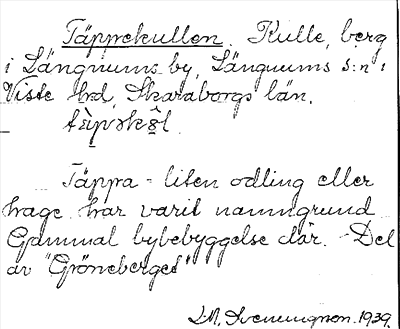 Täppekullen. Kulle, berg
i Längnums by, Längnums s:n i
Viste hrd, Skaraborgs län.
Täppa = liten odling eller
hage har varit namngrund
Gammal bybebyggelse där. Del
av "Gröneberget"
1939.